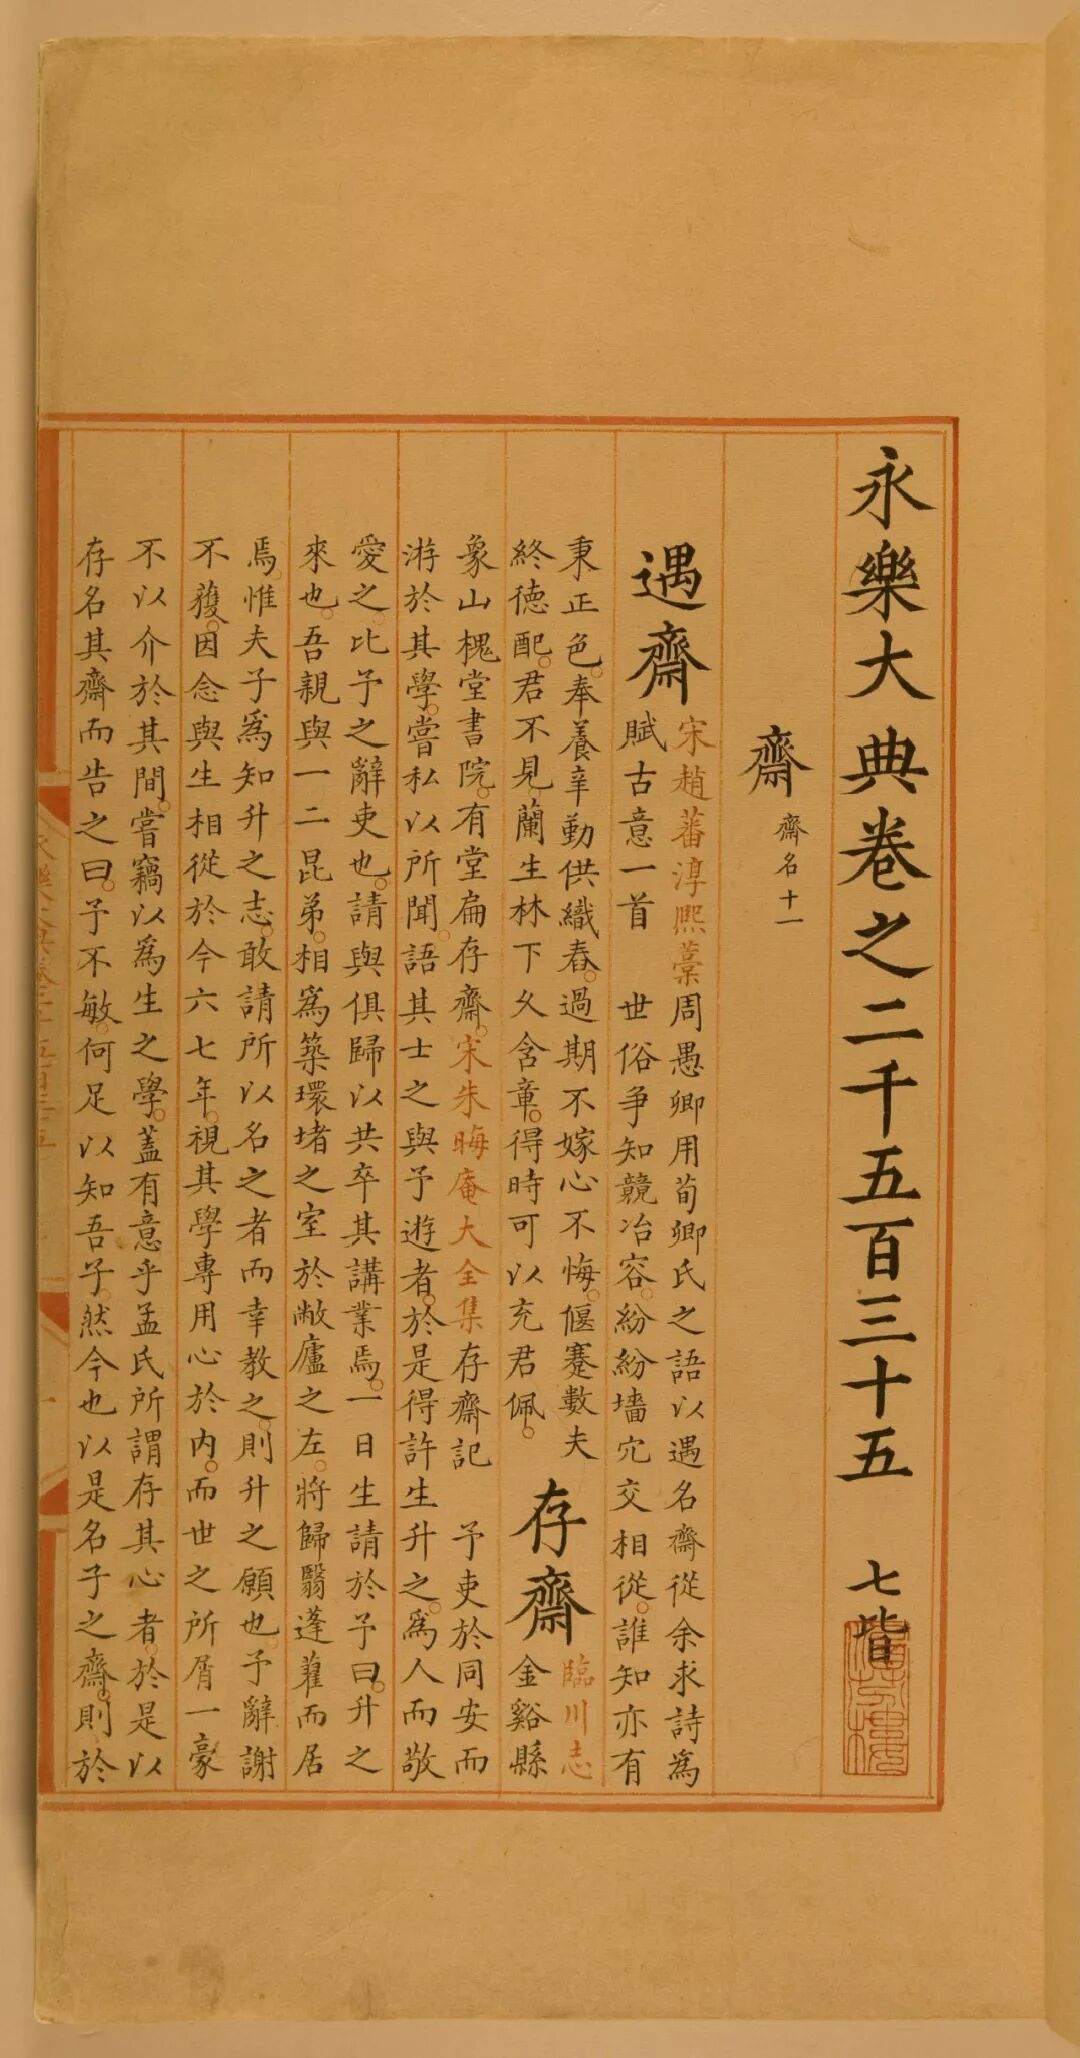 永樂大典卷之二千五百三十五　七皆
齋　齋名十一
遇齋
宋趙蕃淳熙藁周愚卿用荀卿氏之語以遇名齋從余求詩爲
賦古意一首　世俗争知競冶容。紛紛墻宂交相從。誰知亦有
秉正色。奉養辛勤供織舂。過期不嫁心不悔。偃蹇數夫
終德配。君不見蘭生林下久含章。得時可以充君佩。
存齋
臨川志
金谿縣
象山槐堂書院。有堂扁存齋。宋朱晦庵大全集存齋記　予吏於同安而
游於其學。嘗私以所聞。語其士之與予遊者。於是得許生升之。爲人而敬
愛之。比予之辭吏也。請與俱歸以共卒其講業焉。一日生請於予曰。升之
來也。吾親與一二昆弟。相爲築環堵之室於敝廬之左。將歸翳蓬藋而居
焉。惟夫子爲知升之志。敢請所以名之者而幸教之。則升之願也。予辭謝
不獲。因念與生相從於今六七年。視其學專用心於内。而世之所屑一豪
不以介於其間。嘗竊以爲生之學。蓋有意乎孟氏所謂存其心者。於是以
存名其齋而告之曰。予不敏。何足以知吾子。然今也以是名子之齋。則於
永樂大典卷二千五百三十五
一